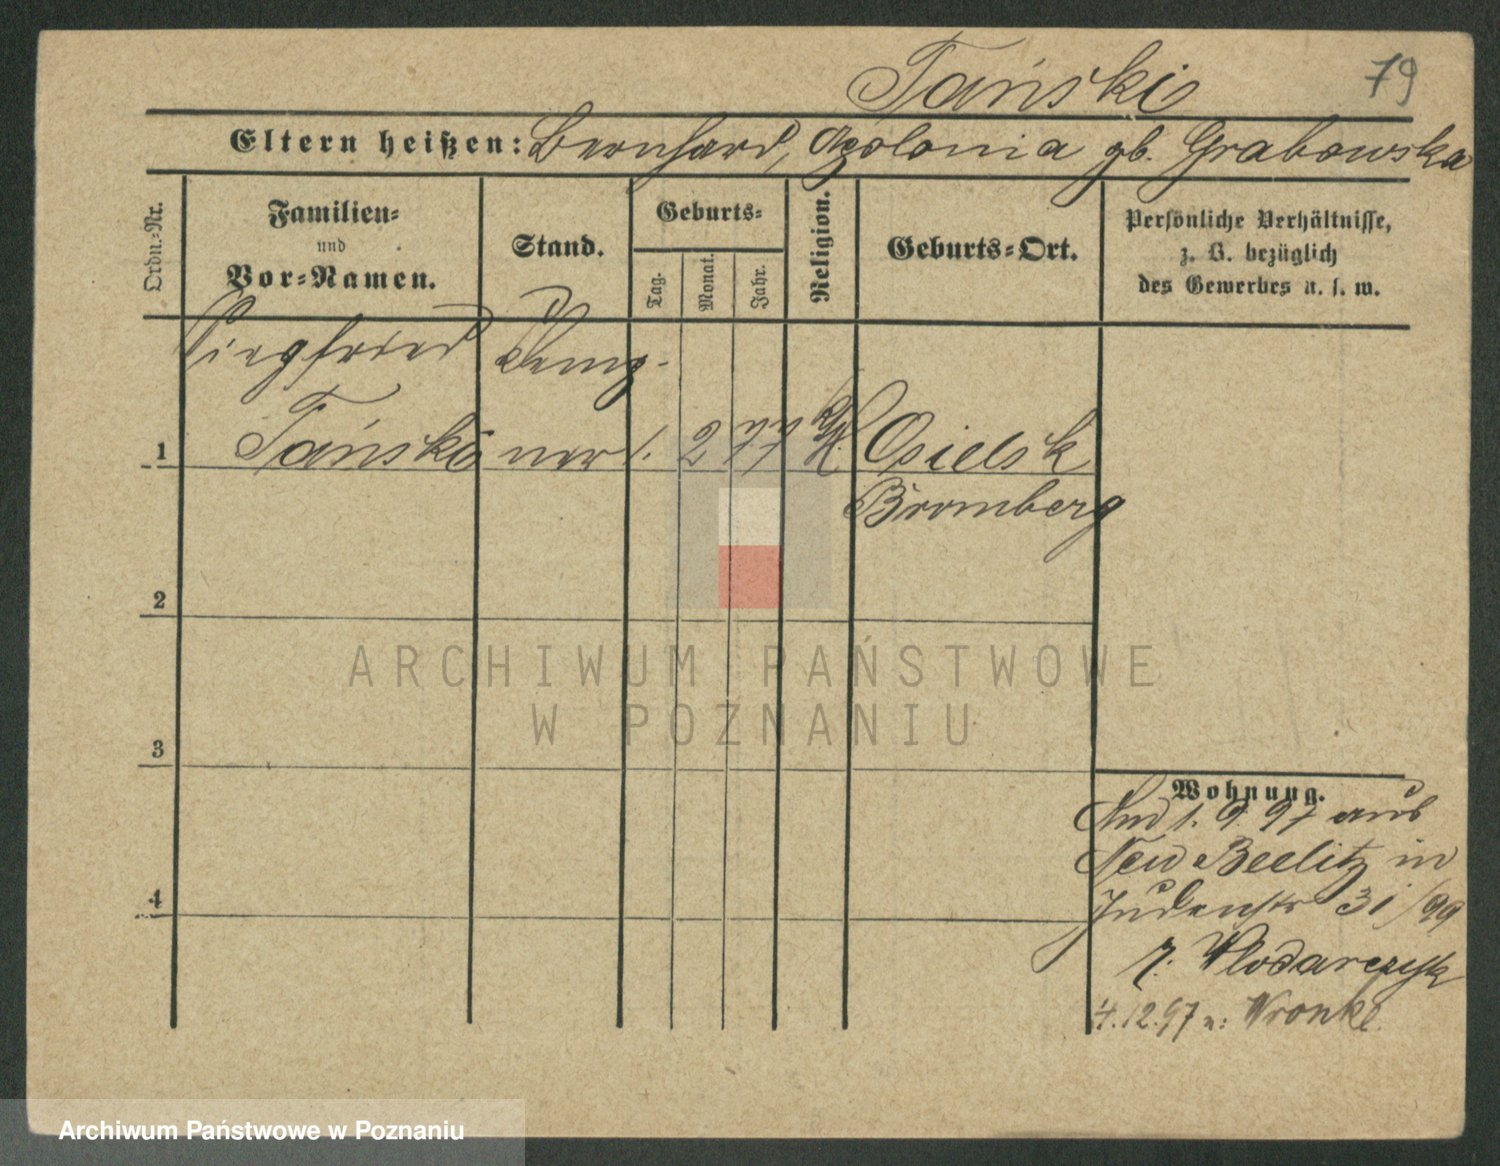 Tański
79
Eltern heißen: Bernhard, Apolonia gb. Grabowska
Ordn.-Nr.
Familien-
und
Vor-Namen.
Stand.
Geburts-
Tag.
Monat.
Jahr.
Religion.
Geburts-Ort.
Persönliche Verhältnisse,
z. B. bezüglich
des Gewerbes u. s. w.
Siegfried
1 Tański 1. 2 77 Osielsk
Bromberg
2
3
4
Wohnung.
1. 9. 97 aus
Neu Beelitz in
Judenstr 31/99
Wlodarczyk
4.12.97 n: Wronke.
ARCHIWUM PAŃSTWOWE
W POZNANIU
Archiwum Państwowe w Poznaniu